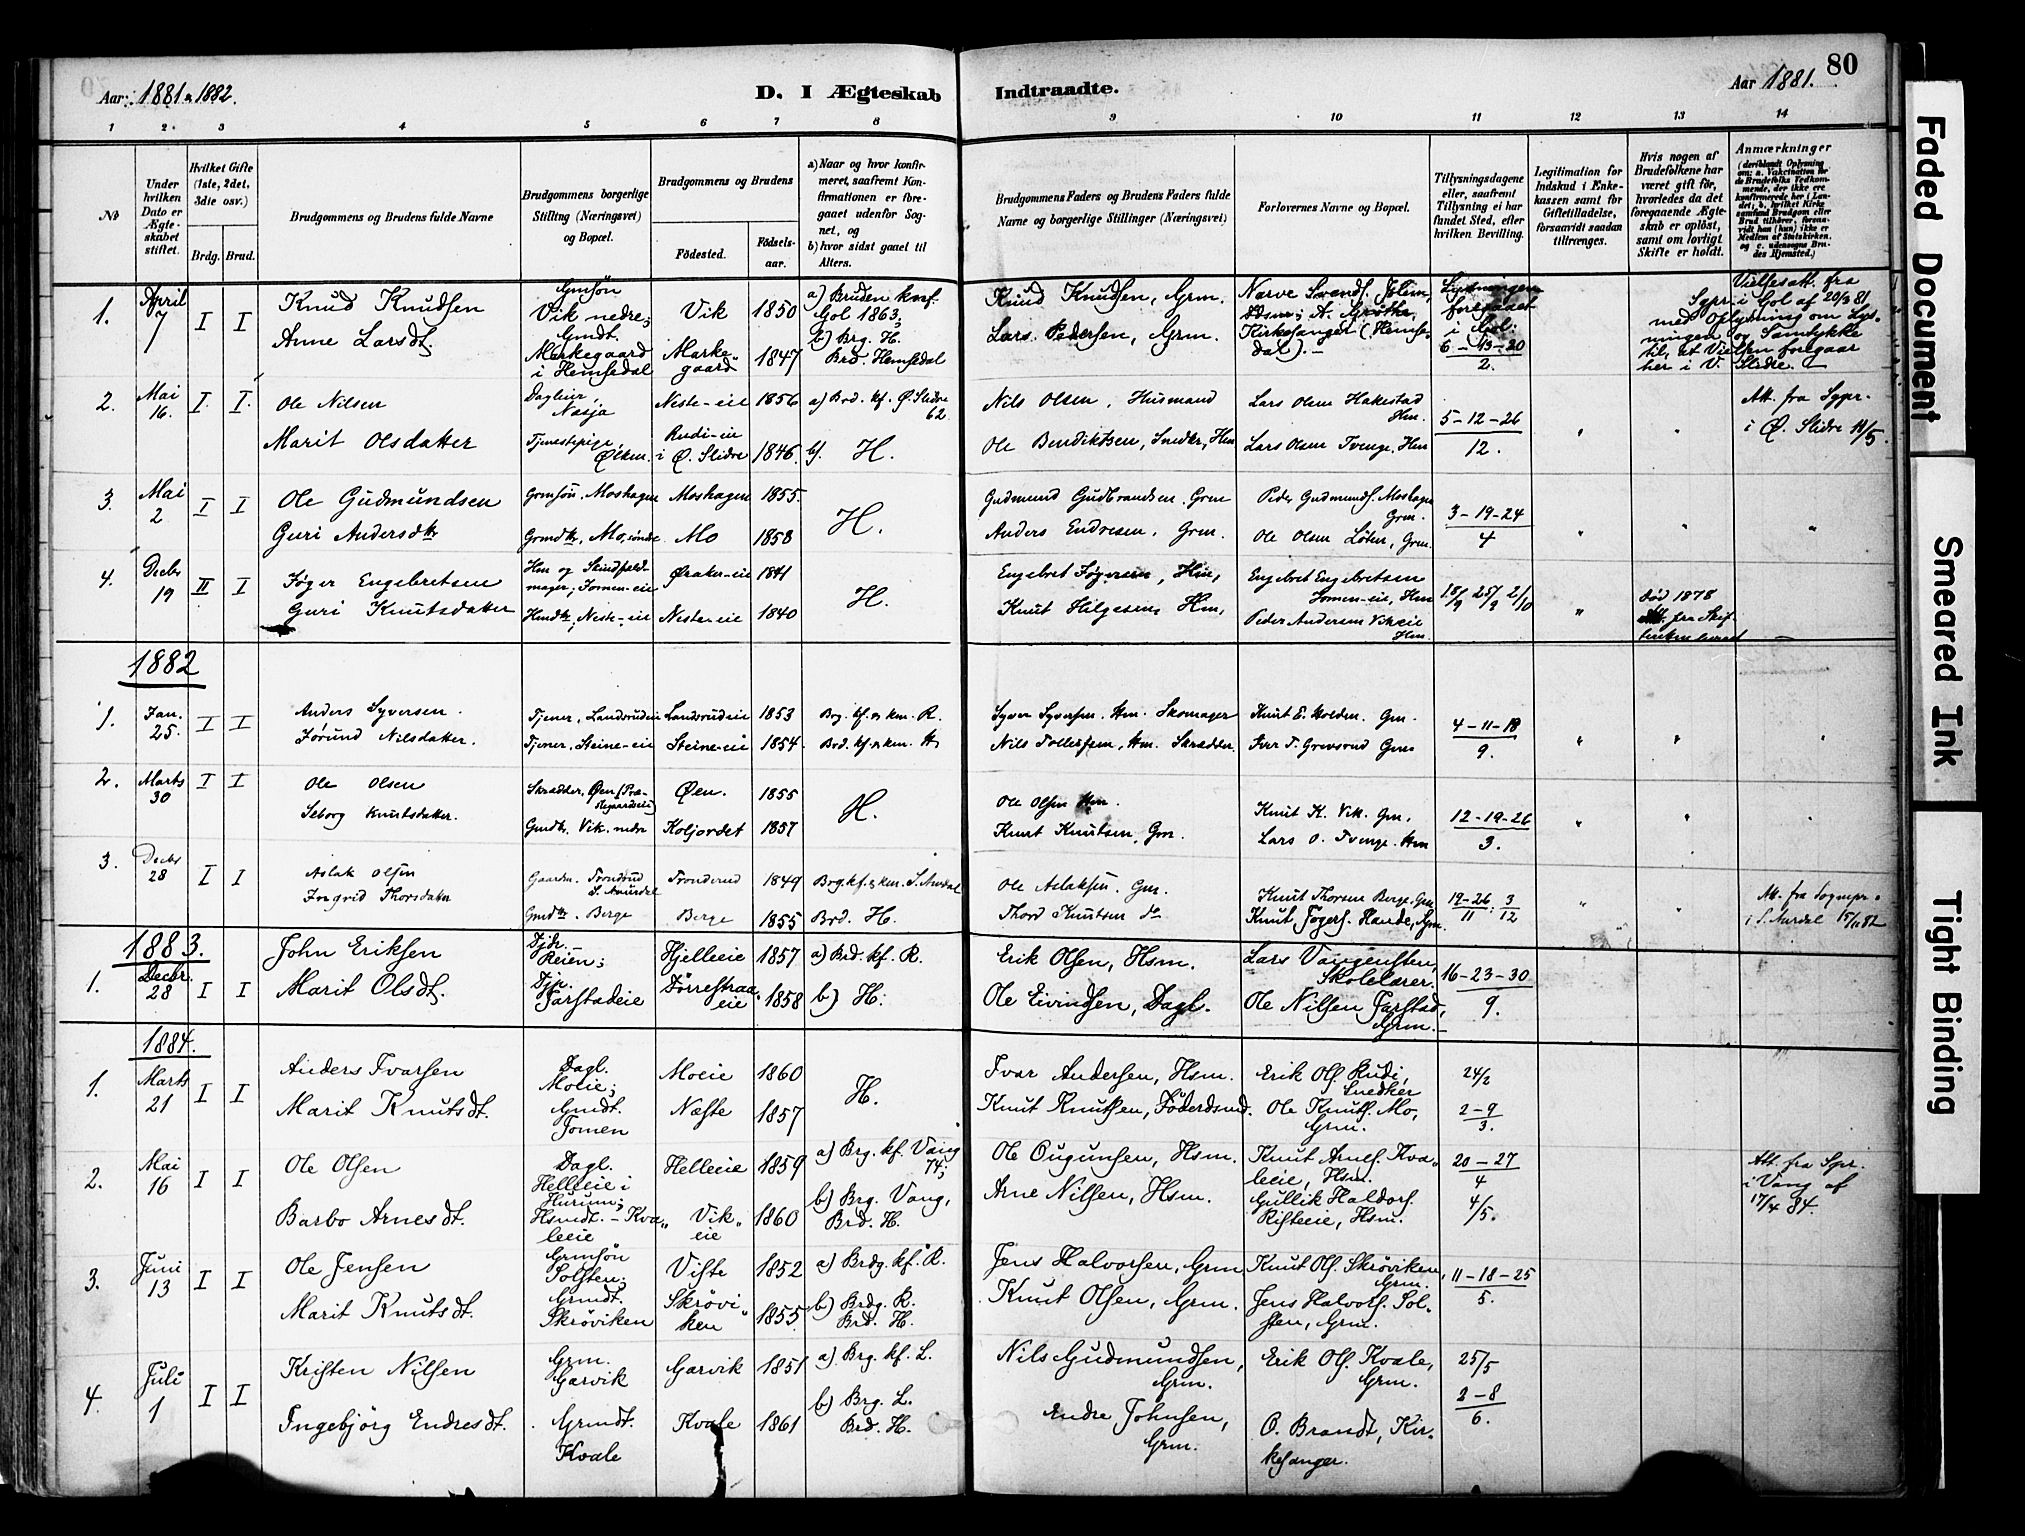 80
Aar: 1881 & 1882.
D. I Ægteskab Indtraadte.
Aar 1881.
1 2 3 4 5 6 7 8 9 10 11 12 13 14
No
Under hvilken Dato er Ægteskabet stiftet.
Hvilket Gifte (1ste, 2det, 3die osv.)
Brdg. Brud.
Brudgommens og Brudens fulde Navne
Brudgommens borgerlige Stilling (Næringsvei) og Bopæl.
Brudgommens og Brudens
Fødested.
Fødselsaar.
a) Naar og hvor konfirmeret, saafremt Konfirmationen er foregaaet udenfor Sognet, og
b) hvor sidst gaaet til Alters.
Brudgommens Faders og Brudens Faders fulde Navne og borgerlige Stillinger (Næringsvei)
Forlovernes Navne og Bopæl.
Tillysningsdagene eller, saafremt Tillysning ei har fundet Sted, efter hvilken Bevilling.
Legitimation for Indskud i Enkekassen samt for Giftetilladelse, forsaavidt saadan tiltrænges.
Hvis nogen af Brudefolkene har været gift før, hvorledes da det foregaaende Ægteskab er opløst, samt om lovligt Skifte er holdt.
Anmærkninger
1. April 7 I I
Knud Knudsen Grmsøn Vik nedre; Vik 1850 a) Bruden konf. Gol 1863;
Anne Larsdt. Grndt. Markegaard i Hemsedal Markegaard 1847 b) Brg. H. Brd. Hemsedal
Knud Knudsen, Grm.
Lars Pedersen, Grm.
Kirkesanger (Hemsedal).
Lysningen foregaaet i Gol: 6-13-20 / 2.
Vielsesatt. fra Sgpr. i Gol af 20/3 81 med Oplysning om Lysningen og Samtykke til, at Vielsen foregaar her i V. Slidre.
2. Mai 16. I. I.
Ole Nilsen Dagleier, Neste-eie 1856 a) Brd. kf. Ø. Slidre 62
Marit Olsdatter Tjenestepige, Rudi-eie i Ø. Slidre 1846. b). H.
Nils Olsen, Husmand Lars Olsen Hakestad Hm.
Ole Bendiktsen, Snedkr, Hm Lars Olsen Tvenge. Hm
5-12-26 / 12. Att. fra Sgpr. i Ø. Slidre
3. Mai 2 I I
Ole Gudmundsen Grmsøn, Moshagen Moshagen 1855.
Guri Andersdtr Grmdtr, Mo, søndre Mo 1858 H.
Gudmund Gudbrandsen. Grm Peder Gudmunds. Moshagen Grm.
Anders Endresen, Grm. Ole Olsen Løken, Grm.
3-19-24 / 4
4. Decbr 19 II I
Jøger Engebretsen Hm og Skindfeldmager, Jomen-eie Øraker-eie 1841
Guri Knutsdatter Hmdtr, Neste-eie Neste-eie 1840 H.
Engebret Jøgersen, Hm, Engebret Engebretsen Jomen-eie, Hm
Knut Helgesen, Hm, Peder Andersen Vikeie Hm.
18/9 25/9 2/10 død 1878
1882
1. Jan. 25. I I
Anders Syversen. Tjener, Landsrudeie Landsrudeie 1853 Brg. kf. & km. R.
Jørund Nilsdatter. Tjener, Steine-eie Steine-eie 1854. Brd. kf & km. H
Syver Syversen. Hm. Skomager Knut E. Holden. Gm.
Nils Tollefsen, Hm. Skrædder. Iver T. Grevsrud Gm
4-11-18 / 9.
2. Marts 30 I I
Ole Olsen Skrædder, Øen (Præstegaardseie) Øen. 1855
Seborg Knutsdatter. Gmdtr. Vik. nedre Koljordet 1857 H.
Ole Olsen Hm. Knut K. Vik. Gm.
Knut Knutsen, Gm. Lars O. Tvenge. Hm
12-19-26 / 3.
3. Decbr 28 I I
Aslak Olsen Gaardm. Trondrud S. Aurdal Tronderud 1849 Brg. kf. & km. S. Aurdal
Ingrid Thorsdatter Gmdtr. Berge Berge 1855 Brd. H.
Ole Aslaksen. Gm. Knut Thorsen Berge. Gm
Thord Knutsen do Knut Jøgers. Hande, Grm.
19-26 / 11 : 3/12 Att. fra Sognepr. i S. Aurdal 15/11 82
1883.
1. Decbr. 28 I I
John Eriksen Tjdr. Reien; Hjelleeie 1857 a) Brd. kf. R.
Marit Olsdt. Tjp. Jarstadeie Dørrestraaeie 1858 b) H:
Erik Olsen, Hsm. Lars Vangensten, Skolelærer.
Ole Eivindsen, Dagl. Ole Nilsen Jarstad, Grm.
16-23-30 / 9.
1884.
1. Marts 21 I I
Anders Ivarsen Dagl. Moeie; Moeie 1860
Marit Knutsdt. Grmdt. Jomen Næste 1857 H.
Ivar Andersen, Hsm. Erik Ols. Rudi, Snedker
Knut Knutsen, Føderdsmd. Ole Knuts. Mo, Grm.
24/2 2-9 / 3.
2. Mai 16 I I
Ole Olsen Dagl. Helleeie i Hurum; Helleeie 1859 a) Brg. kf. Vang 74;
Barbo Arnesdt. Hsmdt. - Kvaleeie Vikeie 1860 b) Brg. Vang, Brd. H.
Ole Ougunsen, Hsm. Knut Arnes. Kvaleeie, Hsm.
Arne Nilsen, Hsm. Gullik Haldors. Risteeie, Hsm.
20-27 / 4 4/5. Att. fra Spr. i Vang af 17/4 84.
3. Juni 13 I I
Ole Jensen Grmsøn Solsten; Viste 1852 a) Brdg. kf. R.
Marit Knutsdt. Grmdt. Skrøviken Skrøviken 1855 b) Brdg. R. Brd. H.
Jens Halvorsen, Grm Knut Ols. Skrøviken, Grm.
Knut Olsen, Grm. Jens Halvors. Solsten, Grm.
11-18-25 / 5.
4. Juli 1 I I
Kristen Nilsen Grm. Garvik Garvik 1851 a) Brg. kf. L.
Ingebjörg Endresdt. Grmdt. Kvale Kvale 1861 b) Brg. L. Brd. H.
Nils Gudmundsen, Grm. Erik Ols. Kvale, Grm.
Endre Johnsen, Grm. O. Brandt, Kirkesanger.
25/5 2-8 / 6.
Faded Document
Smeared Ink
Tight Binding